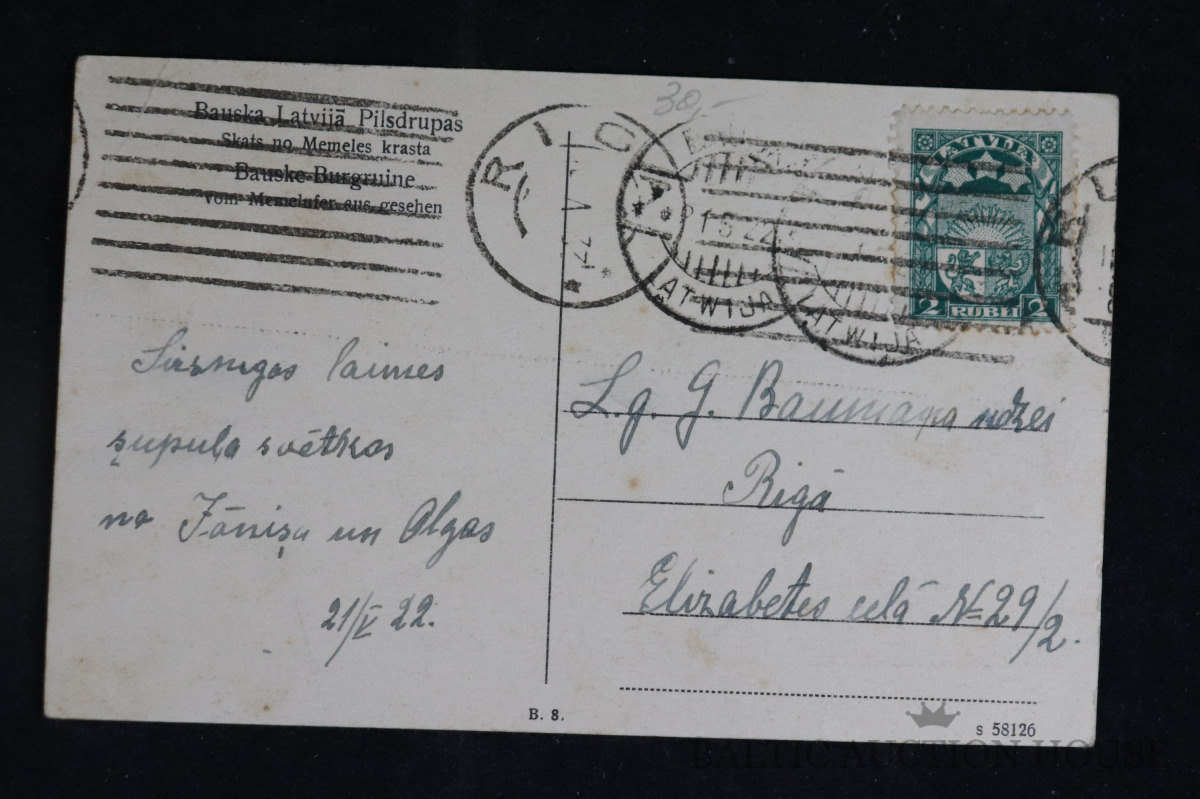 Bauska Latvijā Pilsdrupas
Skats no Memeles krasta
Bauske-Burgruine
vom Memelufer aus gesehen
30,-
RIGA
21 5 22
LATWIJA
LATWIJA
LATVIJA
2 RUBLI 2
Sirsnigas laimes
şupuļa svētkos
no Jānişa un Olgas
21/V 22.
L. g. G. Baumaņa udzei
Rigā
Elizabetes celā № 29/2.
B. 8.
s 58126
BALTIC AUCTION HOUSE